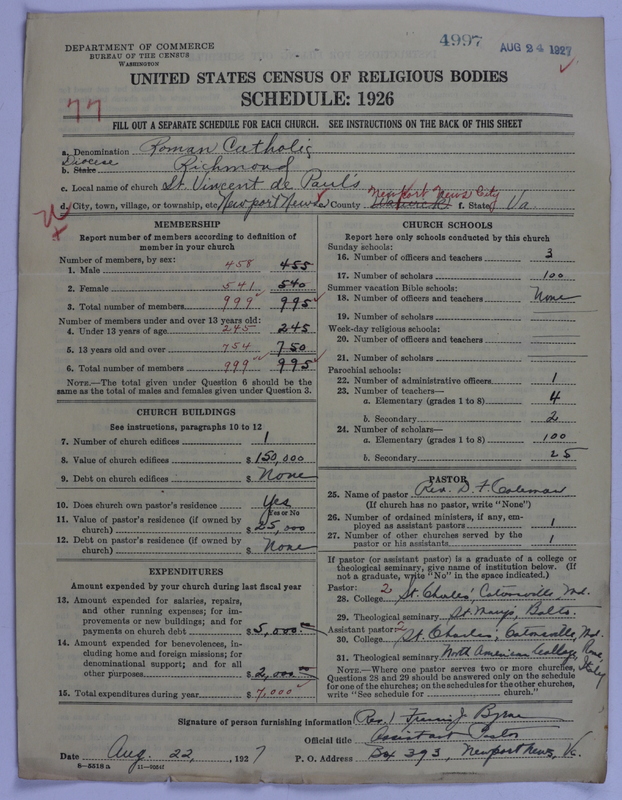 4997
AUG 24 1927
DEPARTMENT OF COMMERCE
BUREAU OF THE CENSUS
WASHINGTON
UNITED STATES CENSUS OF RELIGIOUS BODIES
SCHEDULE: 1926
77
FILL OUT A SEPARATE SCHEDULE FOR EACH CHURCH. SEE INSTRUCTIONS ON THE BACK OF THIS SHEET
a. Denomination Roman Catholic
Diocese
b. Stake Richmond
c. Local name of church St. Vincent de Paul's
Newport News City
d. City, town, village, or township, etc Newport News e. County Warwick f. State Va.
MEMBERSHIP
Report number of members according to definition of
member in your church
Number of members, by sex:
1. Male 458 455
2. Female 541 540
3. Total number of members 999 995
Number of members under and over 13 years old:
4. Under 13 years of age 245 245
5. 13 years old and over 754 750
6. Total number of members 999 995
NOTE.—The total given under Question 6 should be the
same as the total of males and females given under Question 3.
CHURCH BUILDINGS
See instructions, paragraphs 10 to 12
7. Number of church edifices 1
8. Value of church edifices $ 150,000
9. Debt on church edifices $ None
10. Does church own pastor's residence Yes
Yes or No
11. Value of pastor's residence (if owned by
church) $ 25,000
12. Debt on pastor's residence (if owned by
church) $ None
EXPENDITURES
Amount expended by your church during last fiscal year
13. Amount expended for salaries, repairs,
and other running expenses; for im-
provements or new buildings; and for
payments on church debt $ 5,000.
14. Amount expended for benevolences, in-
cluding home and foreign missions; for
denominational support; and for all
other purposes $ 2,000.00
15. Total expenditures during year $ 7,000
CHURCH SCHOOLS
Report here only schools conducted by this church
Sunday schools:
16. Number of officers and teachers 3
17. Number of scholars 100
Summer vacation Bible schools:
18. Number of officers and teachers None
19. Number of scholars
Week-day religious schools:
20. Number of officers and teachers
21. Number of scholars
Parochial schools:
22. Number of administrative officers 1
23. Number of teachers—
a. Elementary (grades 1 to 8) 4
b. Secondary 2
24. Number of scholars—
a. Elementary (grades 1 to 8) 100
b. Secondary 25
PASTOR
25. Name of pastor Rev. D. F. Coleman
(If church has no pastor, write "None")
26. Number of ordained ministers, if any, em-
ployed as assistant pastors 1
27. Number of other churches served by the
pastor or his assistants 1
If pastor (or assistant pastor) is a graduate of a college or
theological seminary, give name of institution below. (If
not a graduate, write "No" in the space indicated.)
Pastor: 2
28. College St. Charles', Catonsville, Md.
29. Theological seminary St. Mary's, Balto.
Assistant pastor: 2
30. College St. Charles', Catonsville, Md.
31. Theological seminary North American College, Rome, Italy
NOTE.—Where one pastor serves two or more churches,
Questions 28 and 29 should be answered only on the schedule
for one of the churches; on the schedules for the other churches,
write "See schedule for church."
Signature of person furnishing information Rev. J. Byrne
Official title Assistant Pastor
Date Aug. 22, 1927 P. O. Address Box 393, Newport News, Va.